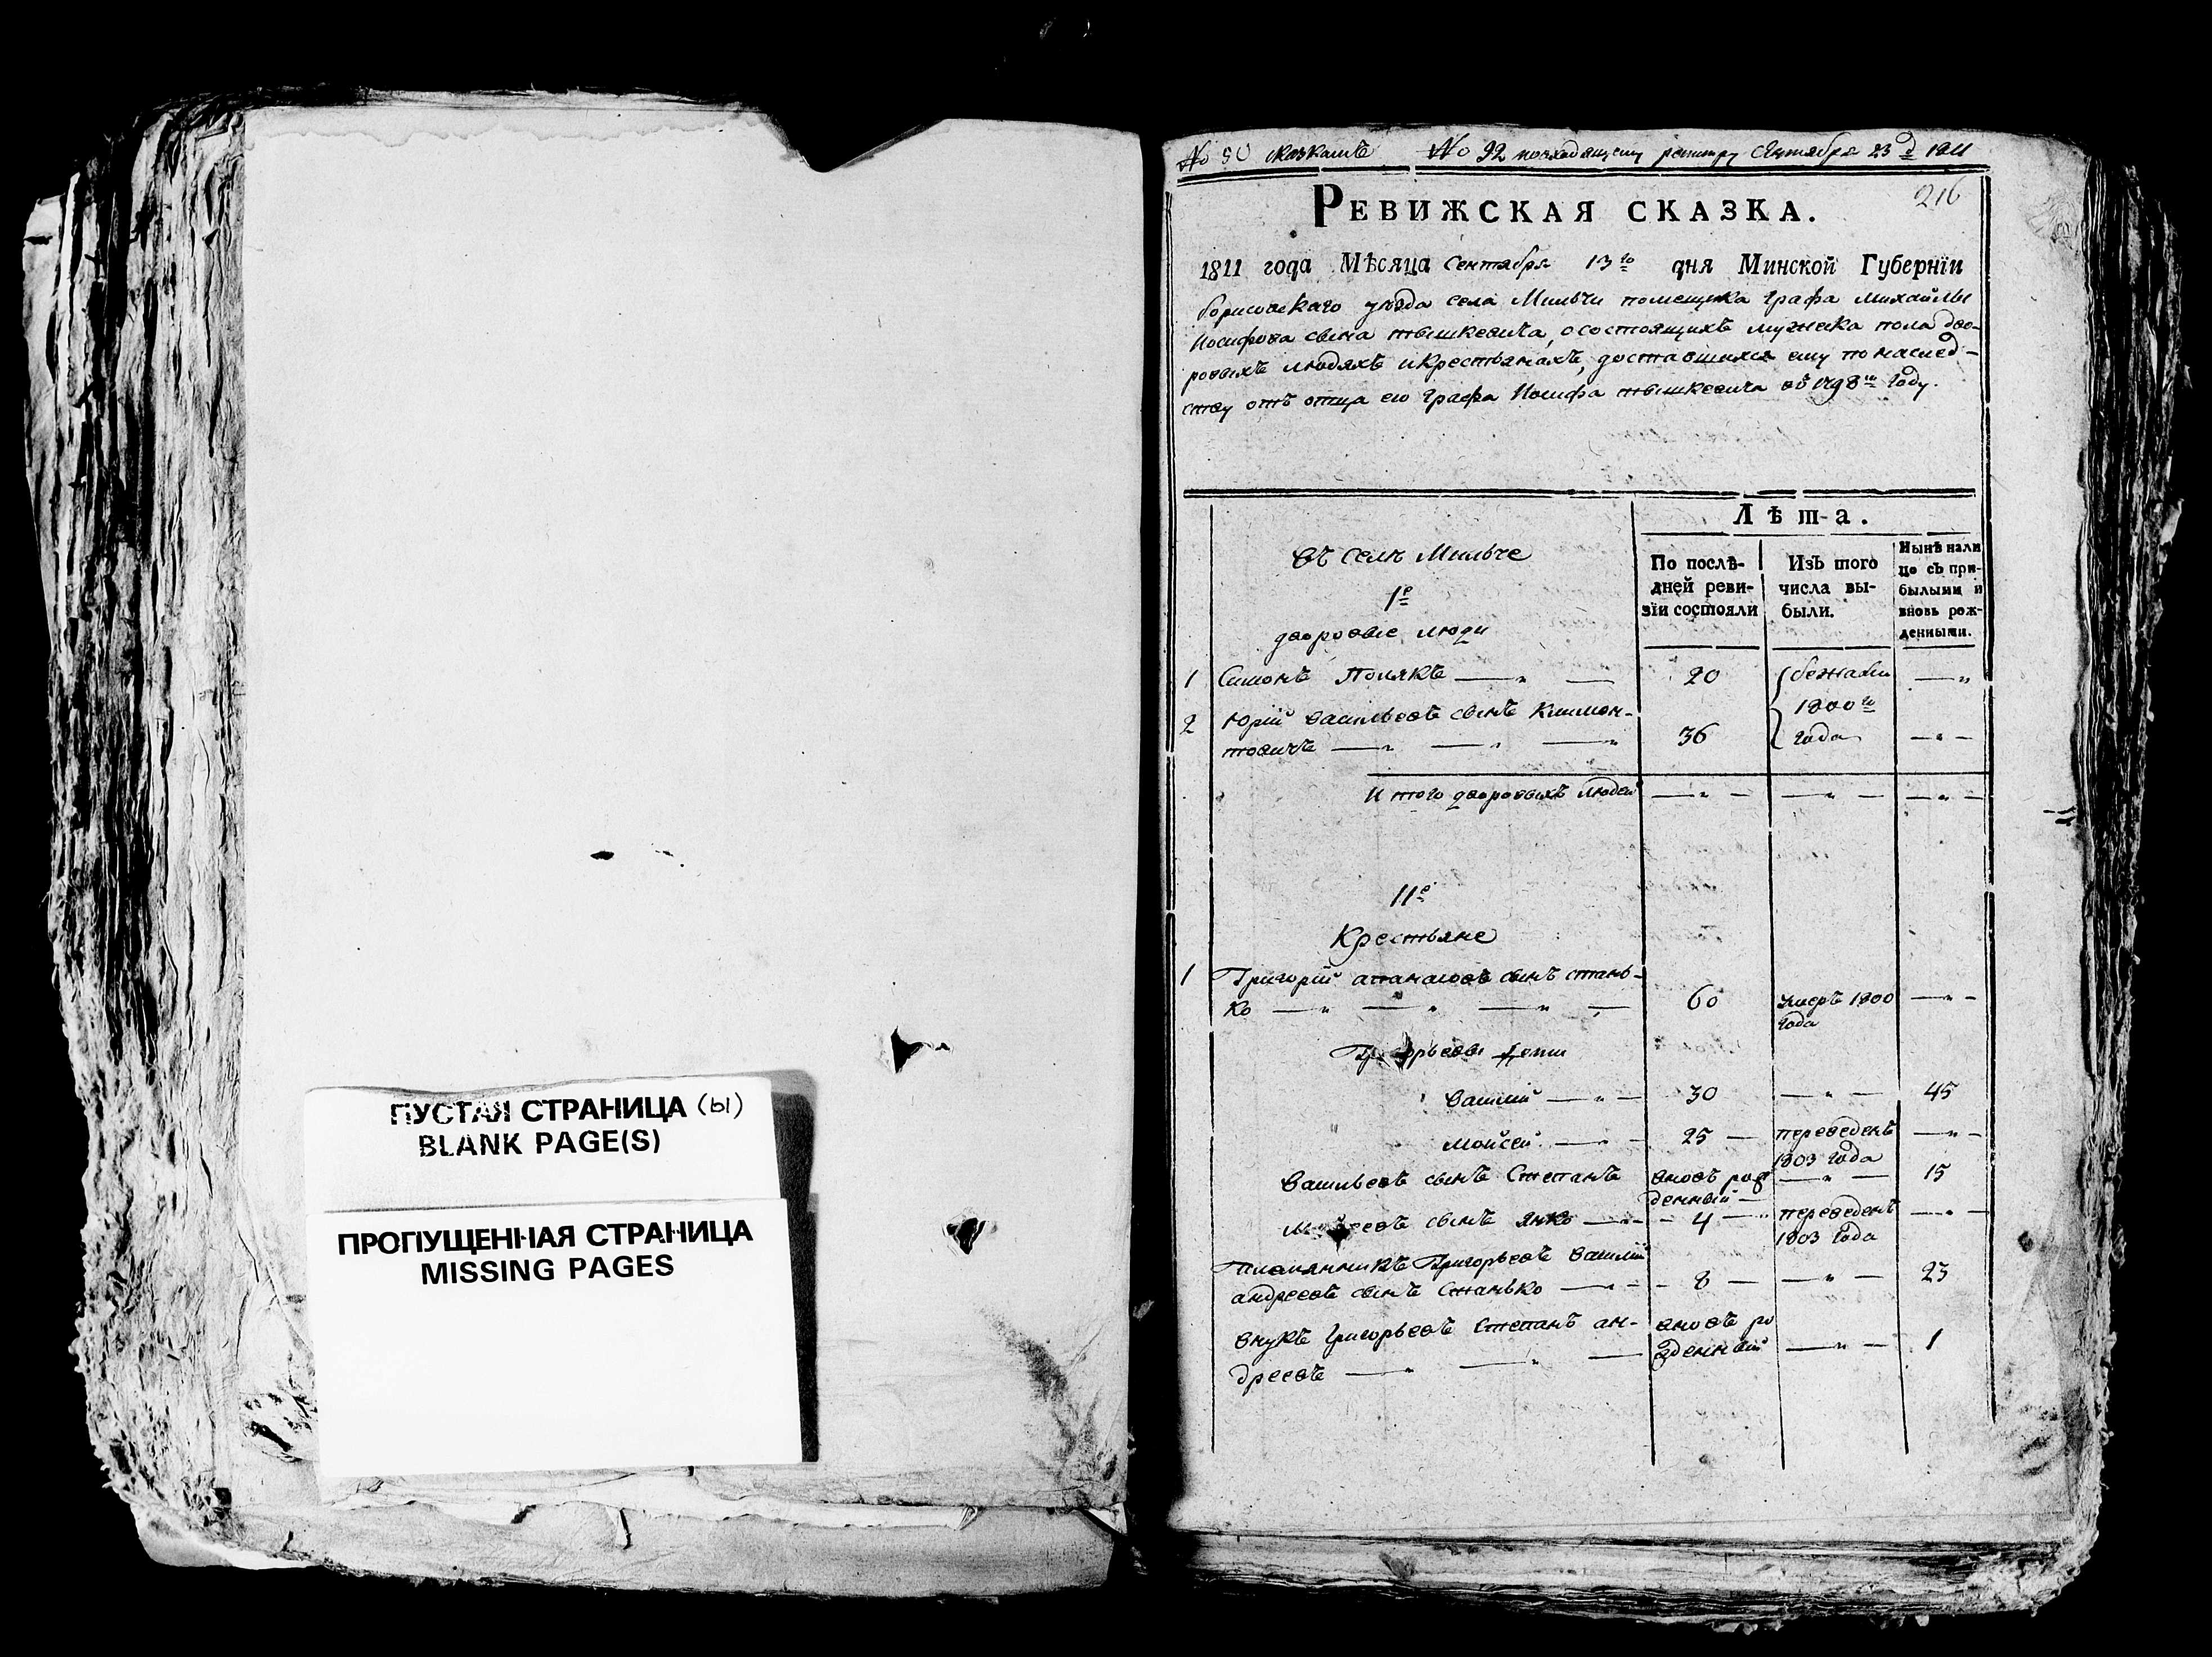 ПУСТАЯ СТРАНИЦА (ы)
BLANK PAGE(S)
ПРОПУЩЕННАЯ СТРАНИЦА
MISSING PAGES
№ 90 № 92 по входящему Сентября 23 д 1811
216
РЕВИЖСКАЯ СКАЗКА.
1811 года Мѣсяца Сентября 13го дня Минской Губернїи
борисовскаго уѣзда села Мильчи помещика графа михайлы
Иосифова сына тышкевича, о состоящихъ мужеска пола дво-
ровыхъ людяхъ и крестьянахъ, доставшихся ему по наслед-
ству отъ отца его графа Иосифа тышкевича въ 1798м году.
Лѣта.
въ селѣ Мильче
По послѣ-
дней реви-
зїи состояли
Изъ того
числа вы-
были.
Нынѣ нали
цо съ при-
былыми и
вновь рож-
денными.
1е
дворовые люди
1 Симонъ Полякъ — „ — 20 бежали — „
2 Юрий васильевъ сынъ Климон- 1800го
товичъ — „ — „ — „ 36 года — „ —
Итого дворовыхъ людей — „ — — „ — — „ —
11е
Крестьяне
1 Григорий апанасовъ сынъ стань-
ко — „ — „ — „ — „ 60 умеръ 1800 — „ —
года
Григорьевы дети
василий — „ — 30 — „ — 45
мойсей — „ — 25 — переведенъ — „ —
1803 года
васильевъ сынъ Степанъ вновь рож — „ — 15
денный —
Мойсеевъ сынъ янко — „ — 4 — переведенъ — „ —
1803 года
племянникъ Григорьевъ василий
андреевъ сынъ Станько — „ — 8 — — „ — 23
внукъ григорьевъ Степанъ ан- вновь ро
дреевъ — „ — „ — жденный — „ — 1